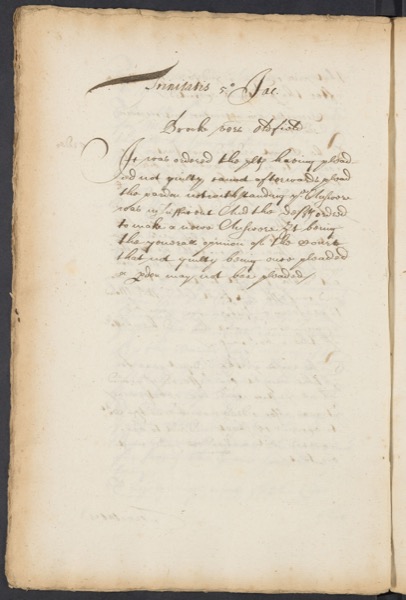 Trinitatis 5° Jac.
Brooke vers Oldfield
It was ordered the plt having plead
ed not guilty cannot afterwards plead
the pardon notwithstanding yt Answere
was insufficient And the defft orded
to make a newe Answere yt being
the generall opinion of the Court
that not guilty being once pleaded
a pdon may not bee pleaded